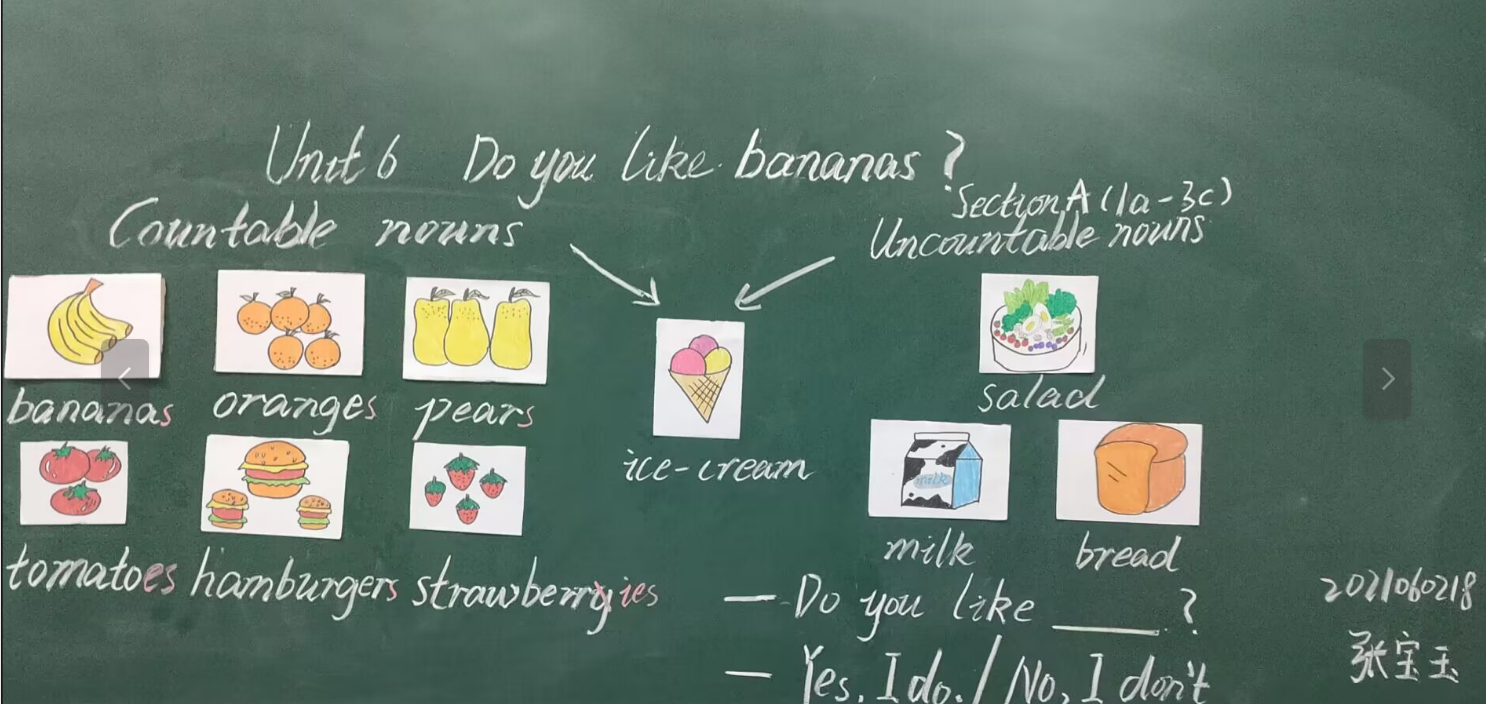 Unit 6 Do you like bananas?
Section A (1a-3c)
Countable nouns
Uncountable nouns
bananas oranges pears
tomatoes hamburgers strawberryies
ice-cream
salad
milk
milk bread
— Do you like ____?
— Yes, I do. / No, I don't
2021060218
张宝玉